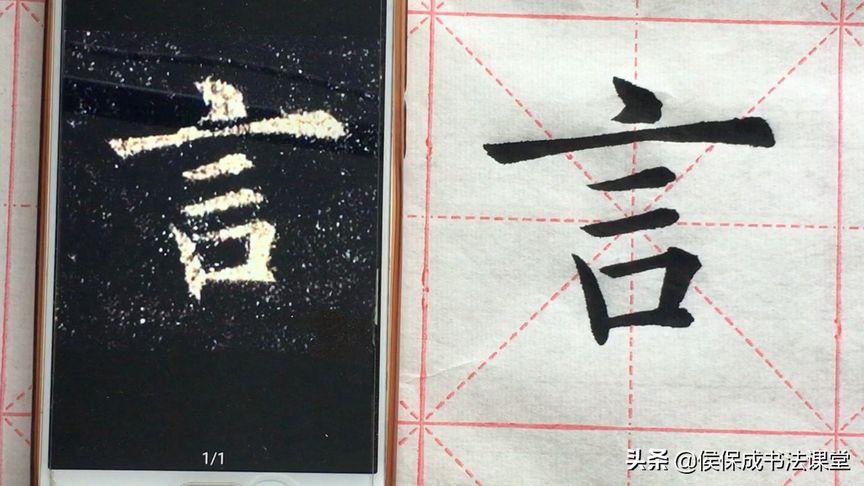 言
言
1/1
头条 @侯保成书法课堂